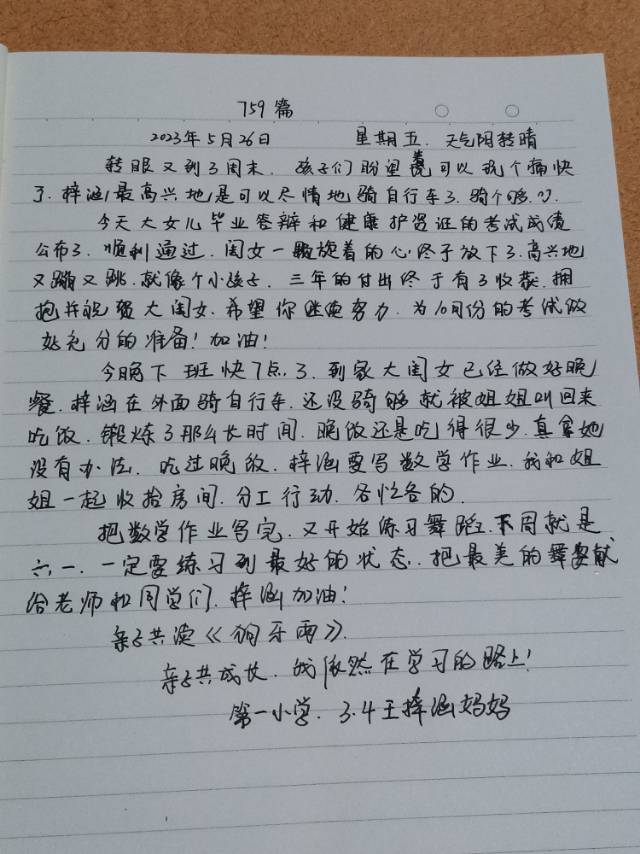 759篇
2023年5月26日 星期五 天气阴转晴
转眼又到了周末，孩子们盼望着可以玩个痛快
了，梓涵最高兴地是可以尽情地骑自行车了，骑个够
今天大女儿毕业答辩和健康护资证的考试成绩
公布了，顺利通过，闺女一颗旋着的心终于放下了，高兴地
又蹦又跳，就像个小孩子，三年的付出终于有了收获，拥
抱并祝贺大闺女，希望你继续努力，为10月份的考试做
好充分的准备！加油！
今晚下班快7点了，到家大闺女已经做好晚
餐，梓涵在外面骑自行车，还没骑够就被姐姐叫回来
吃饭，锻炼了那么长时间，晚饭还是吃得很少，真拿她
没有办法，吃过晚饭，梓涵要写数学作业，我和姐
姐一起收拾房间，分工行动，各忙各的。
把数学作业写完，又开始练习舞蹈，下周就是
六一，一定要练习到最好的状态，把最美的舞姿献
给老师和同学们，梓涵加油！
亲子共读《狗牙雨》。
亲子共成长，我依然在学习的路上！
第一小学，3.4王梓涵妈妈